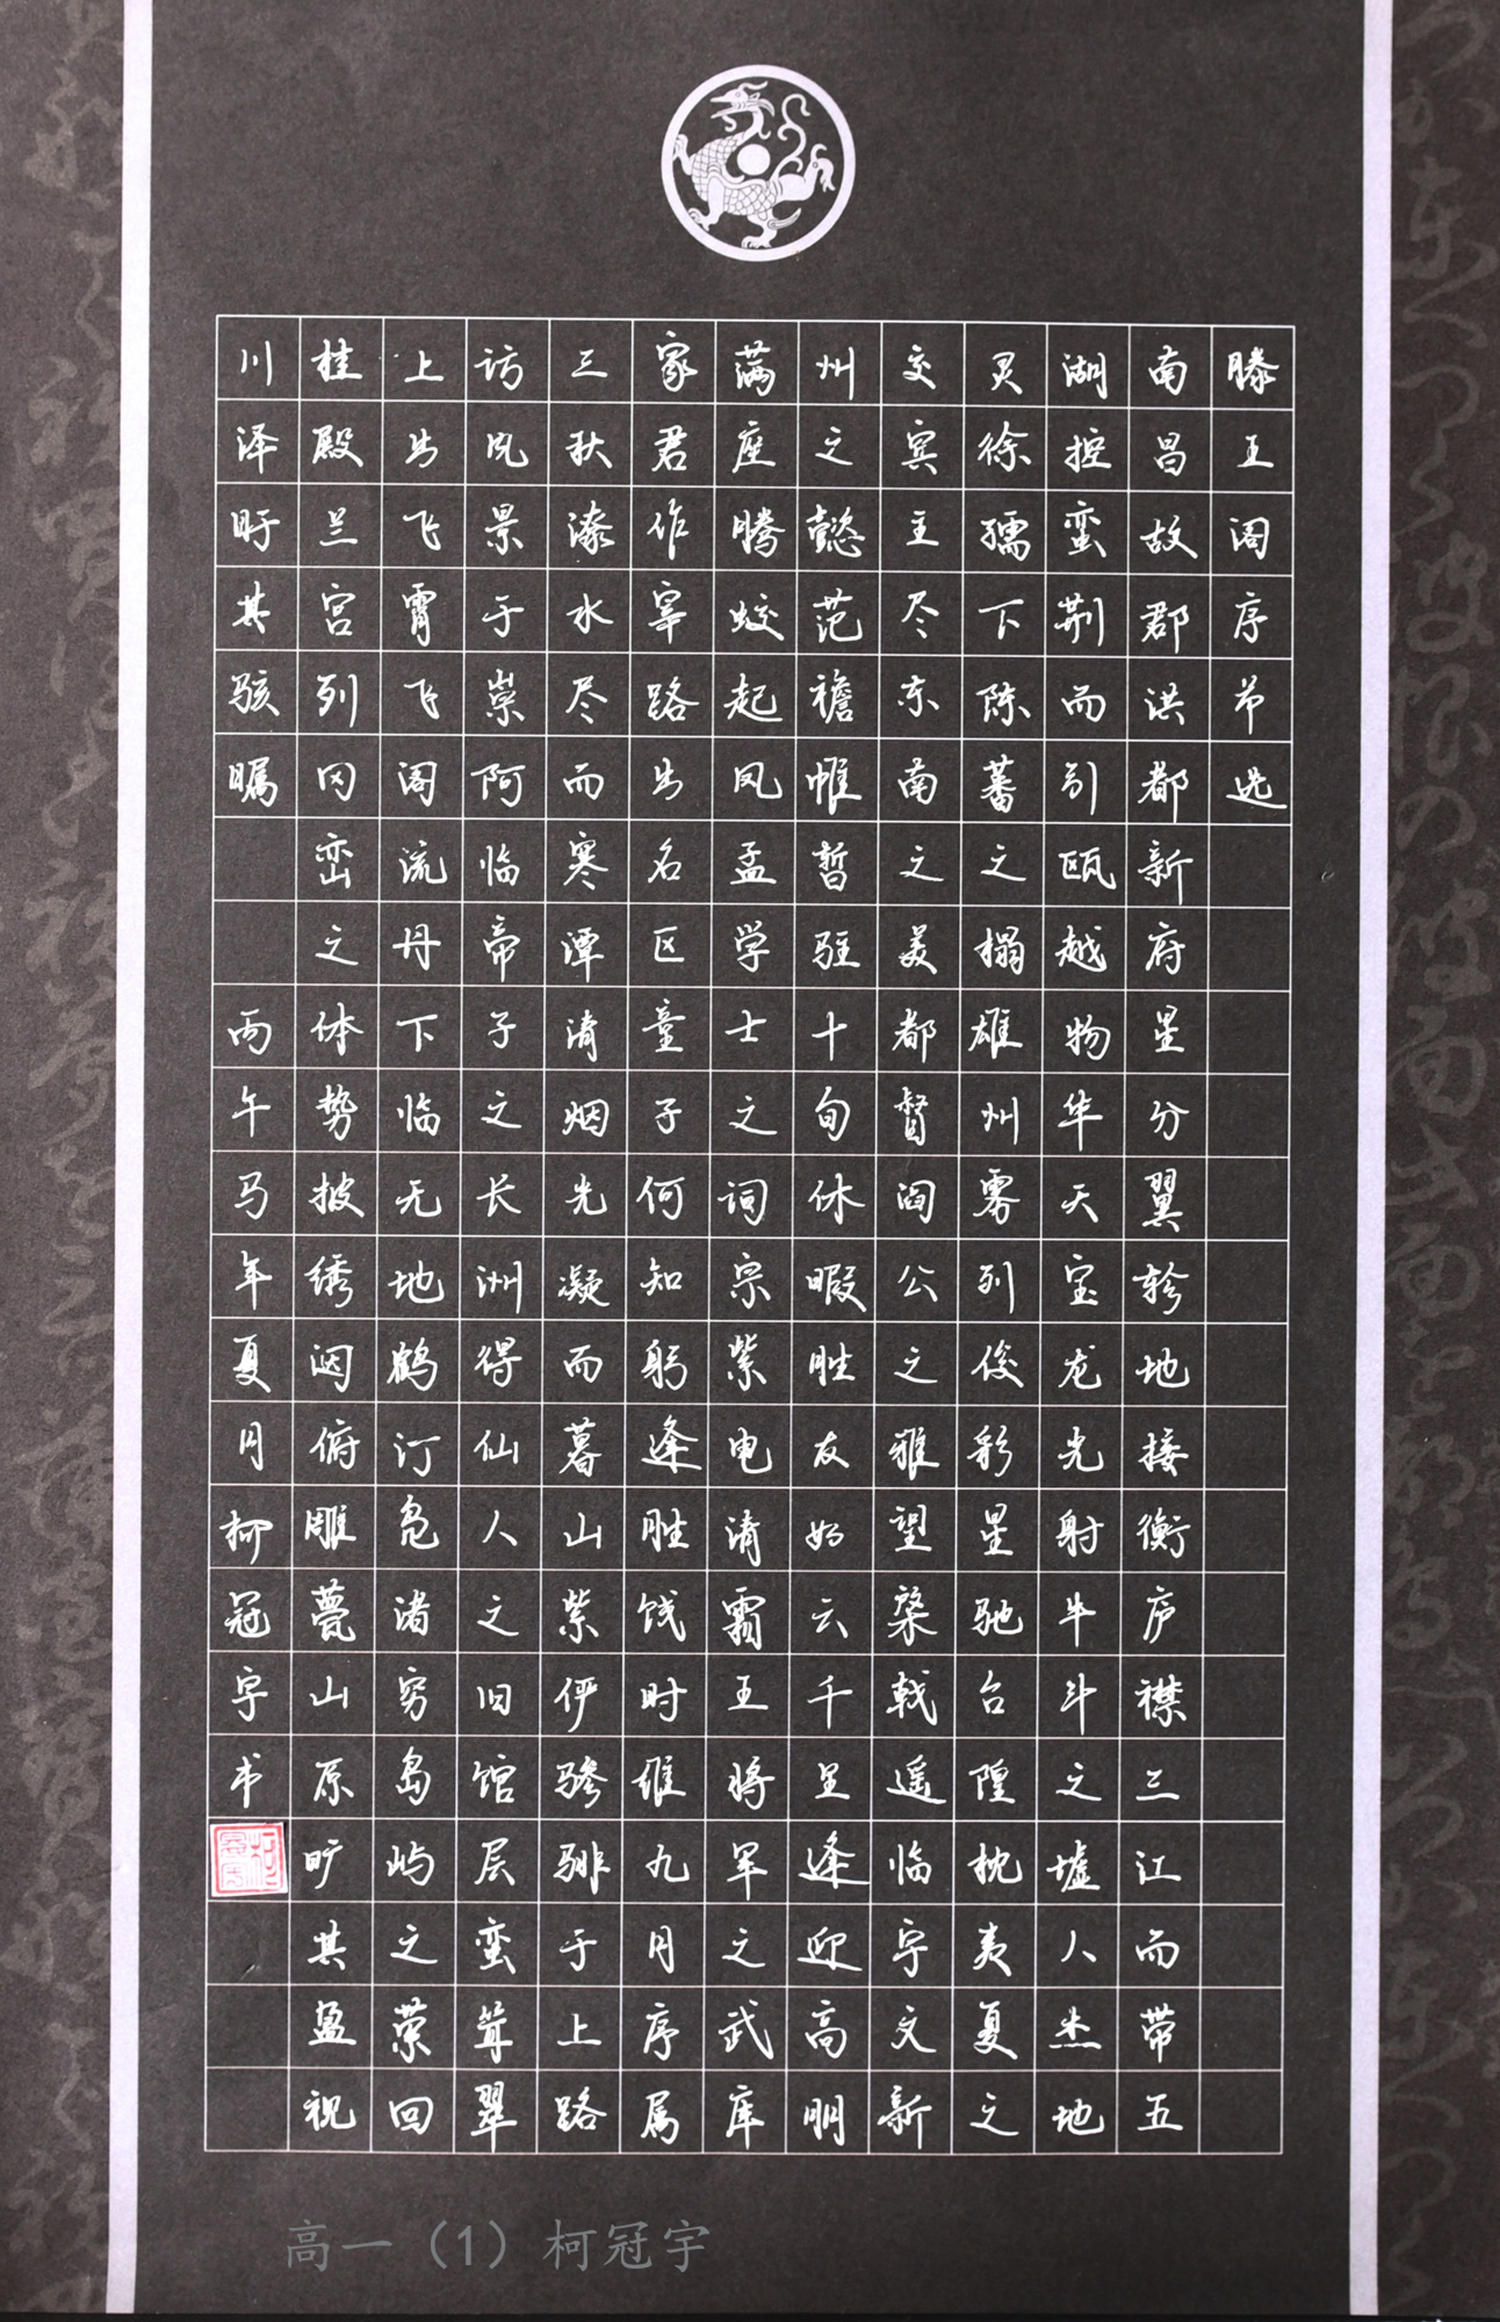 滕王阁序节选
南昌故郡洪都新府星分翼轸地接衡庐襟三江而带五
湖控蛮荆而引瓯越物华天宝龙光射牛斗之墟人杰地
灵徐孺下陈蕃之榻雄州雾列俊彩星驰台隍枕夷夏之
交宾主尽东南之美都督阎公之雅望棨戟遥临宇文新
州之懿范襜帷暂驻十旬休暇胜友如云千里逢迎高朋
满座腾蛟起凤孟学士之词宗紫电清霜王将军之武库
家君作宰路出名区童子何知躬逢胜饯时维九月序属
三秋潦水尽而寒潭清烟光凝而暮山紫俨骖騑于上路
访风景于崇阿临帝子之长洲得仙人之旧馆层蛮耸翠
上出飞霄飞阁流丹下临无地鹤汀凫渚穷岛屿之萦回
桂殿兰宫列冈峦之体势披绣闼俯雕甍山原旷其盈视
川泽盱其骇瞩 丙午马年夏月柯冠宇书
高一（1）柯冠宇